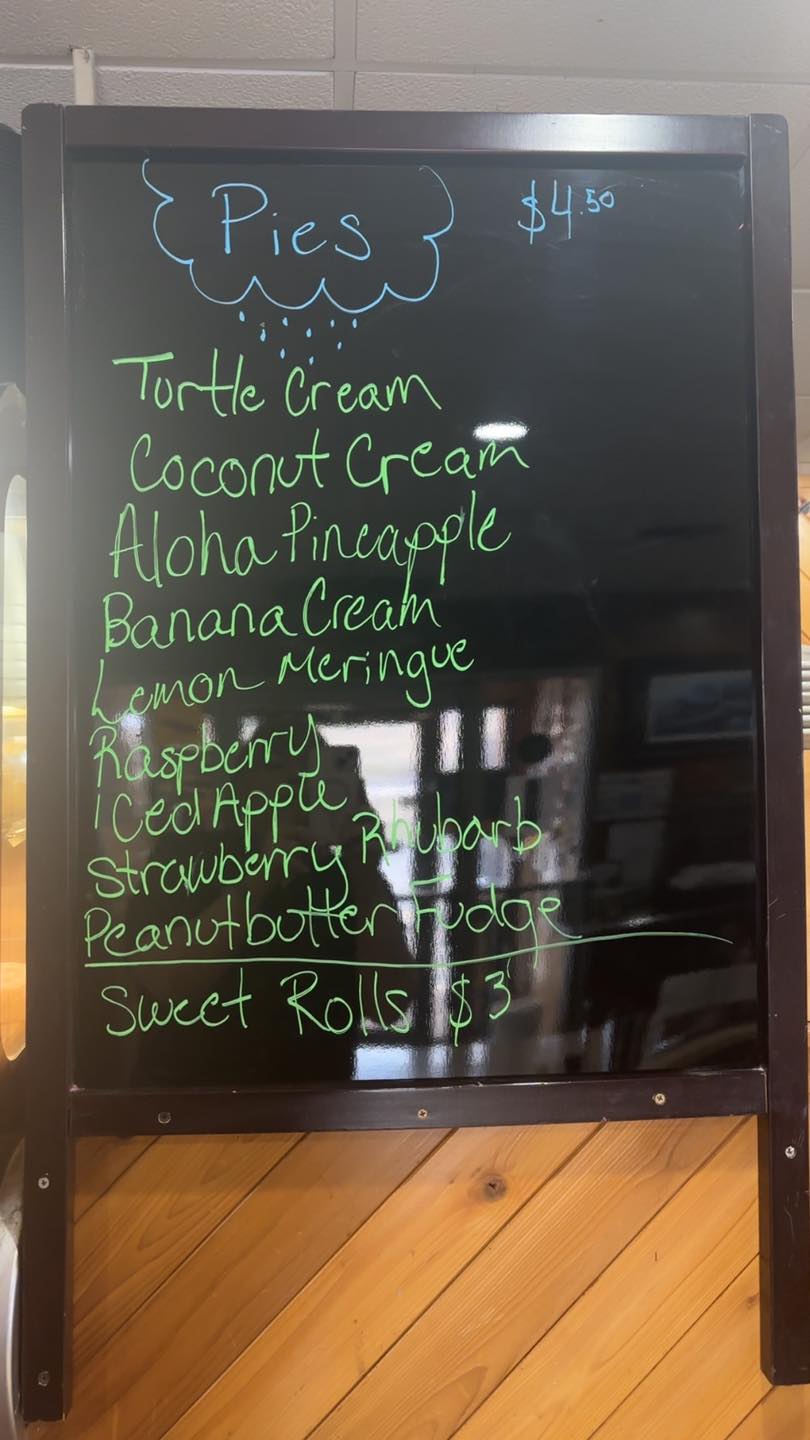 Pies $4.50
Turtle Cream
Coconut Cream
Aloha Pineapple
Banana Cream
Lemon Meringue
Raspberry
Iced Apple
Strawberry Rhubarb
Peanutbutter Fudge
Sweet Rolls $3